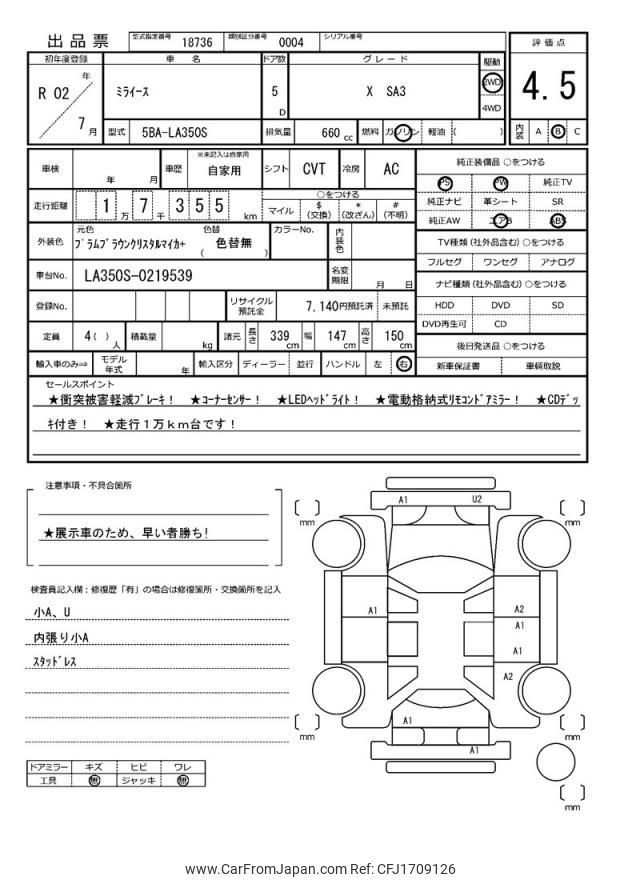 出品票 型式指定番号 18736 類別区分番号 0004 シリアル番号
初年度登録 車 名 ドア数 グレード 駆動 評価点
R 02 年 7 月 ミライース 5 D X SA3 2WD 4WD 4.5
型式 5BA-LA350S 排気量 660 cc 燃料 ガソリン 軽油 ( ) 内装 A B C
車検 年 月 車歴 ※未記入は自家用 自家用 シフト CVT 冷房 AC
走行距離 1 万 7 千 3 5 5 km ○をつける
マイル $ (交換) * (改ざん) # (不明)
外装色 元色 プラムブラウンクリスタルマイカ+ 色替 ( 色替無 ) カラーNo. 内装色
車台No. LA350S-0219539 名変期限 月 日
登録No. リサイクル預託金 7,140円預託済 未預託
定員 4( ) 人 積載量 kg 諸元 長さ 339 cm 幅 147 cm 高さ 150 cm
輸入車のみ⇒ モデル年式 年 輸入区分 ディーラー 並行 ハンドル 左 右
純正装備品 ○をつける
PS PW 純正TV
純正ナビ 革シート SR
純正AW エアB ABS
TV種類 (社外品含む) ○をつける
フルセグ ワンセグ アナログ
ナビ種類 (社外品含む) ○をつける
HDD DVD SD
DVD再生可 CD
後日発送品 ○をつける
新車保証書 車輌取説
セールスポイント
★衝突被害軽減ブレーキ! ★コーナーセンサー! ★LEDヘッドライト! ★電動格納式リモコンドアミラー! ★CDデッ
キ付き! ★走行1万km台です!
注意事項・不具合箇所
★展示車のため、早い者勝ち!
検査員記入欄:修復歴「有」の場合は修復箇所・交換箇所を記入
小A、U
内張り小A
スタッドレス
ドアミラー キズ ヒビ ワレ
工具 無 ジャッキ 無
A1 U2
mm mm
A1 A2
A1
A1
A2
A1
A1
mm mm
mm
www.CarFromJapan.com Ref: CFJ1709126